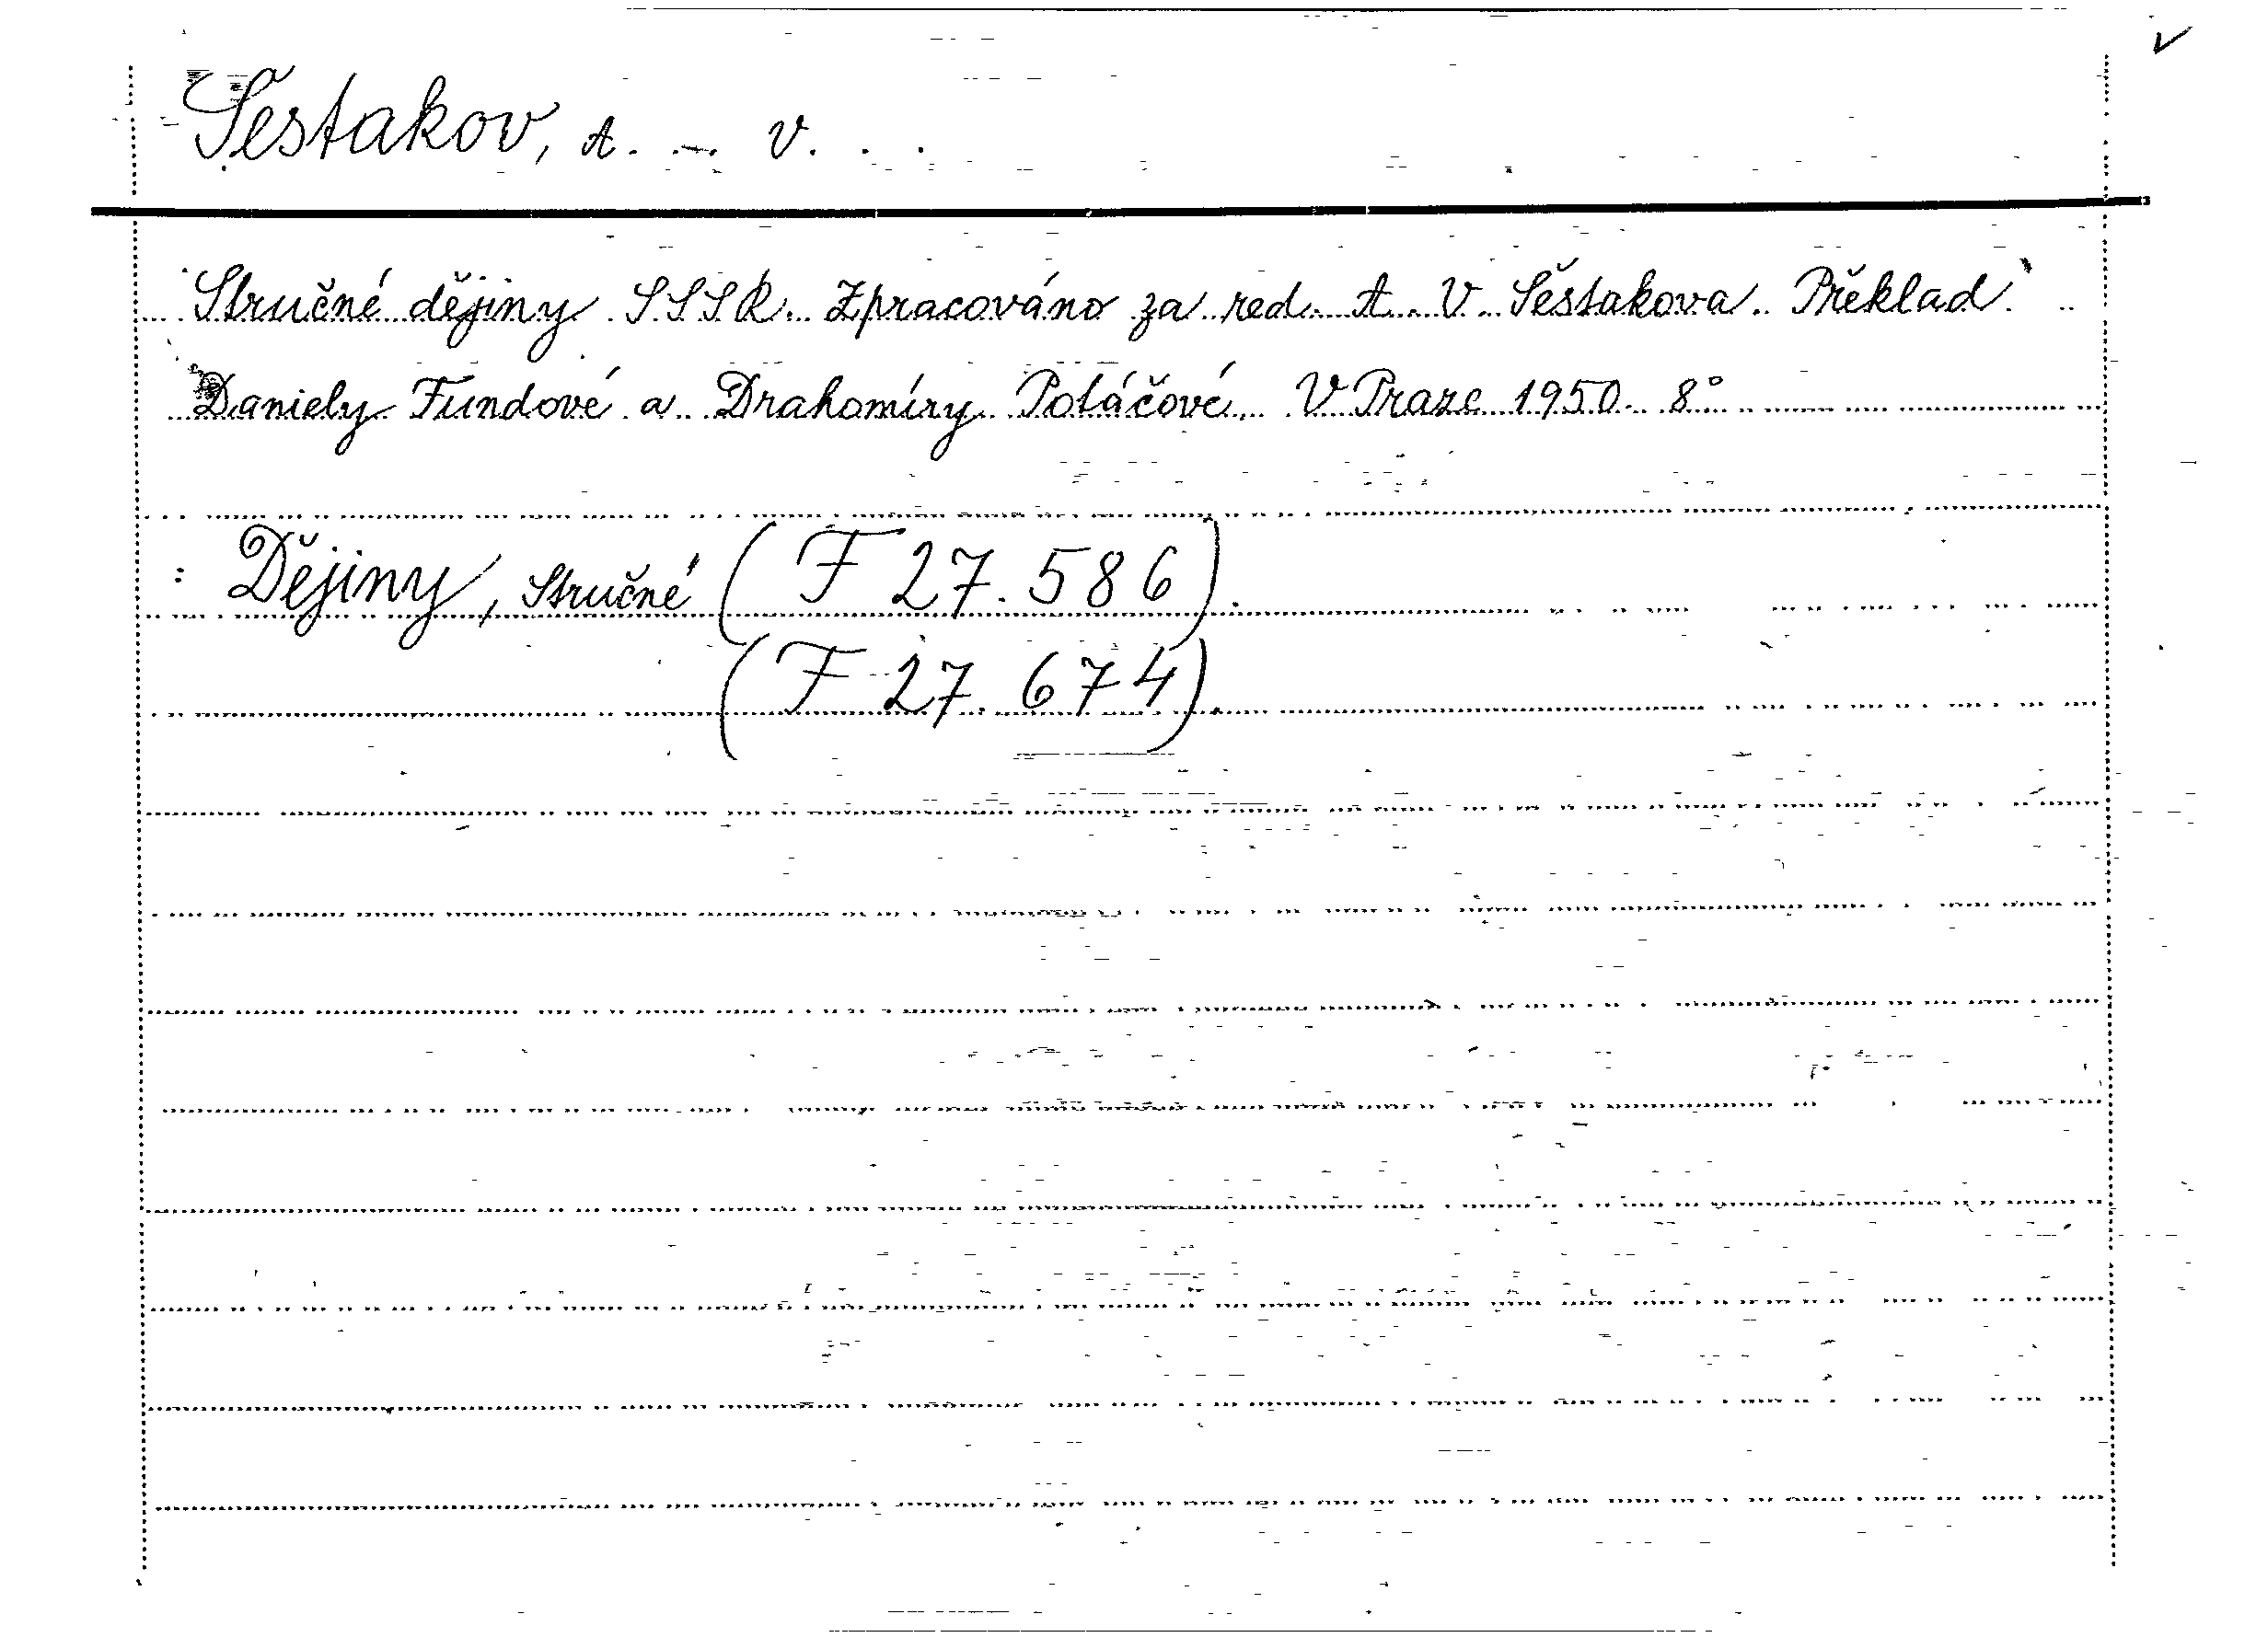 Šestakov, A. V.
Stručné dějiny SSSR. Zpracováno za red. A. V. Šestakova. Překlad
Daniely Fundové a Drahomíry Potáčové. V Praze 1950. 8°
: Dějiny, stručné (F 27.586).
(F 27.674).